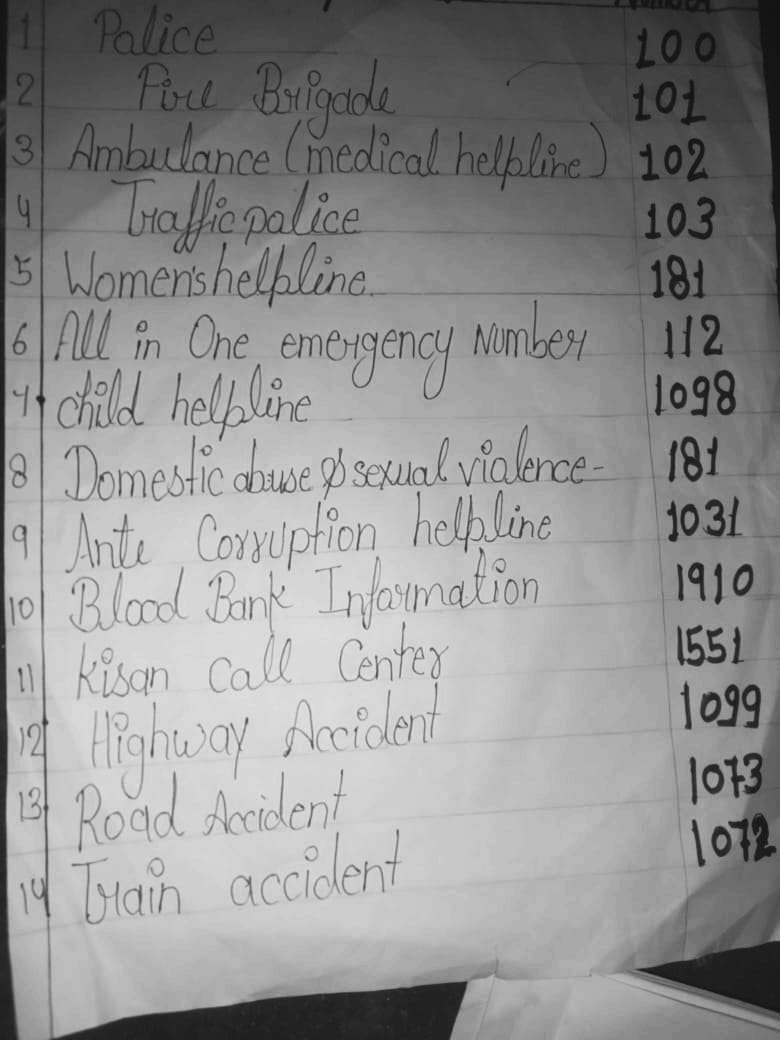 Number
1 Palice 100
2 Fire Brigade 101
3 Ambulance (medical helpline) 102
4 Traffic palice 103
5 Women's helpline. 181
6 All in One emergency Number 112
7 child helpline 1098
8 Domestic abuse & sexual vialence - 181
9 Ante Corruption helpline 1031
10 Blood Bank Information 1910
11 Kisan Call Center 1551
12 Highway Accident 1099
13 Road Accident 1073
14 Train accident 1072